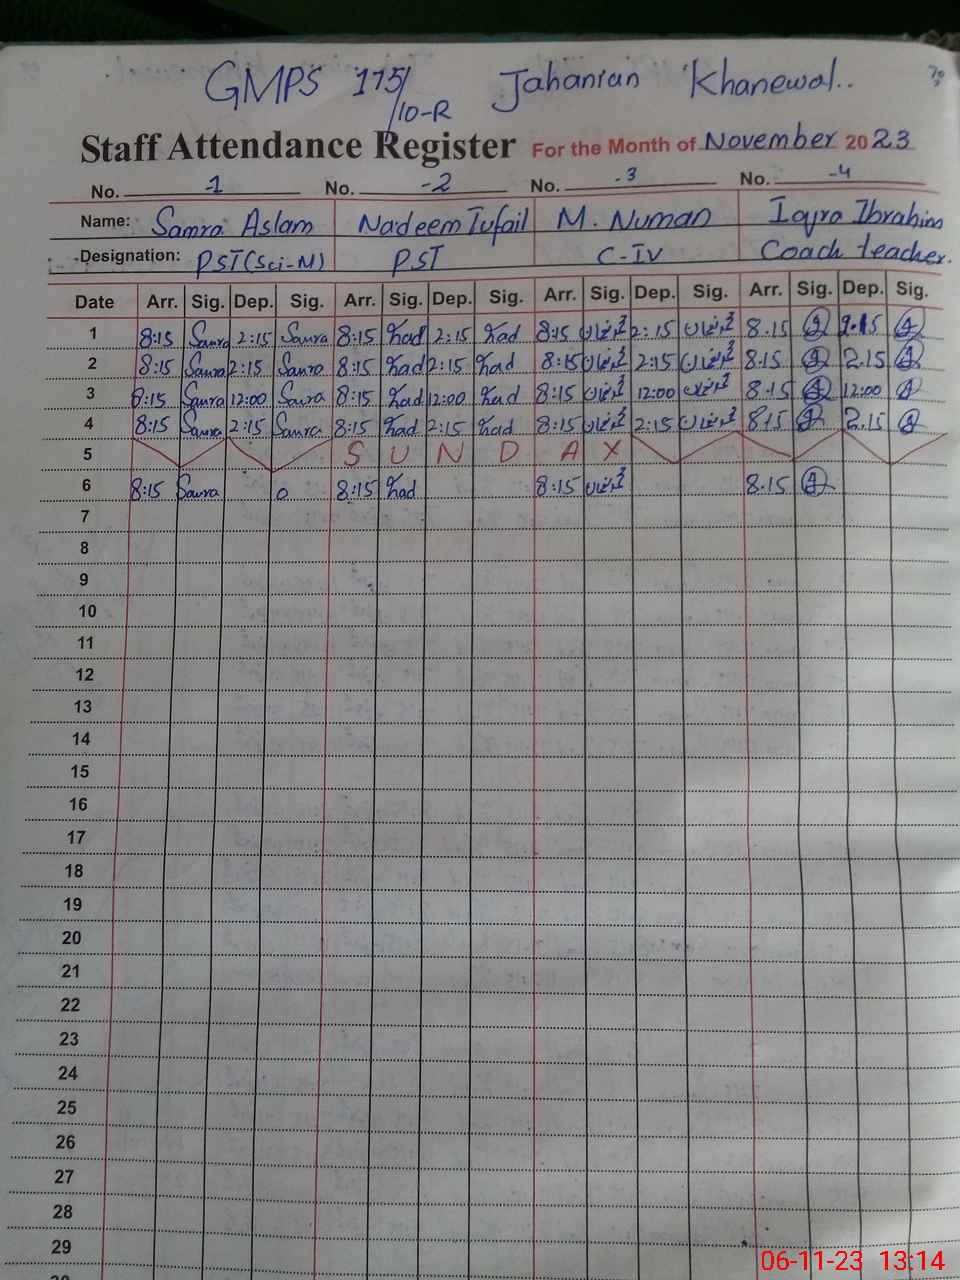 GMPS 175/10-R Jahanian Khanewal..
Staff Attendance Register For the Month of November 2023
No. -1 No. -2 No. -3 No. -4
Name: Samra Aslam Nadeem Tufail M. Numan Iqra Ibrahim
Designation: PST(Sci-M) PST C-IV Coach teacher.
Date Arr. Sig. Dep. Sig. Arr. Sig. Dep. Sig. Arr. Sig. Dep. Sig. Arr. Sig. Dep. Sig.
1 8:15 Samra 2:15 Samra 8:15 2:15 8:15 2:15 8.15 2.15
2 8:15 Samra 2:15 Samra 8:15 2:15 8:15 2:15 8.15 2.15
3 8:15 Samra 12:00 Samra 8:15 12:00 8:15 12:00 8.15 12:00
4 8:15 Samra 2:15 Samra 8:15 2:15 8:15 2:15 8.15 2.15
5 S U N D A Y
6 8:15 Samra 8:15 8:15 8.15
7
8
9
10
11
12
13
14
15
16
17
18
19
20
21
22
23
24
25
26
27
28
29
06-11-23 13:14